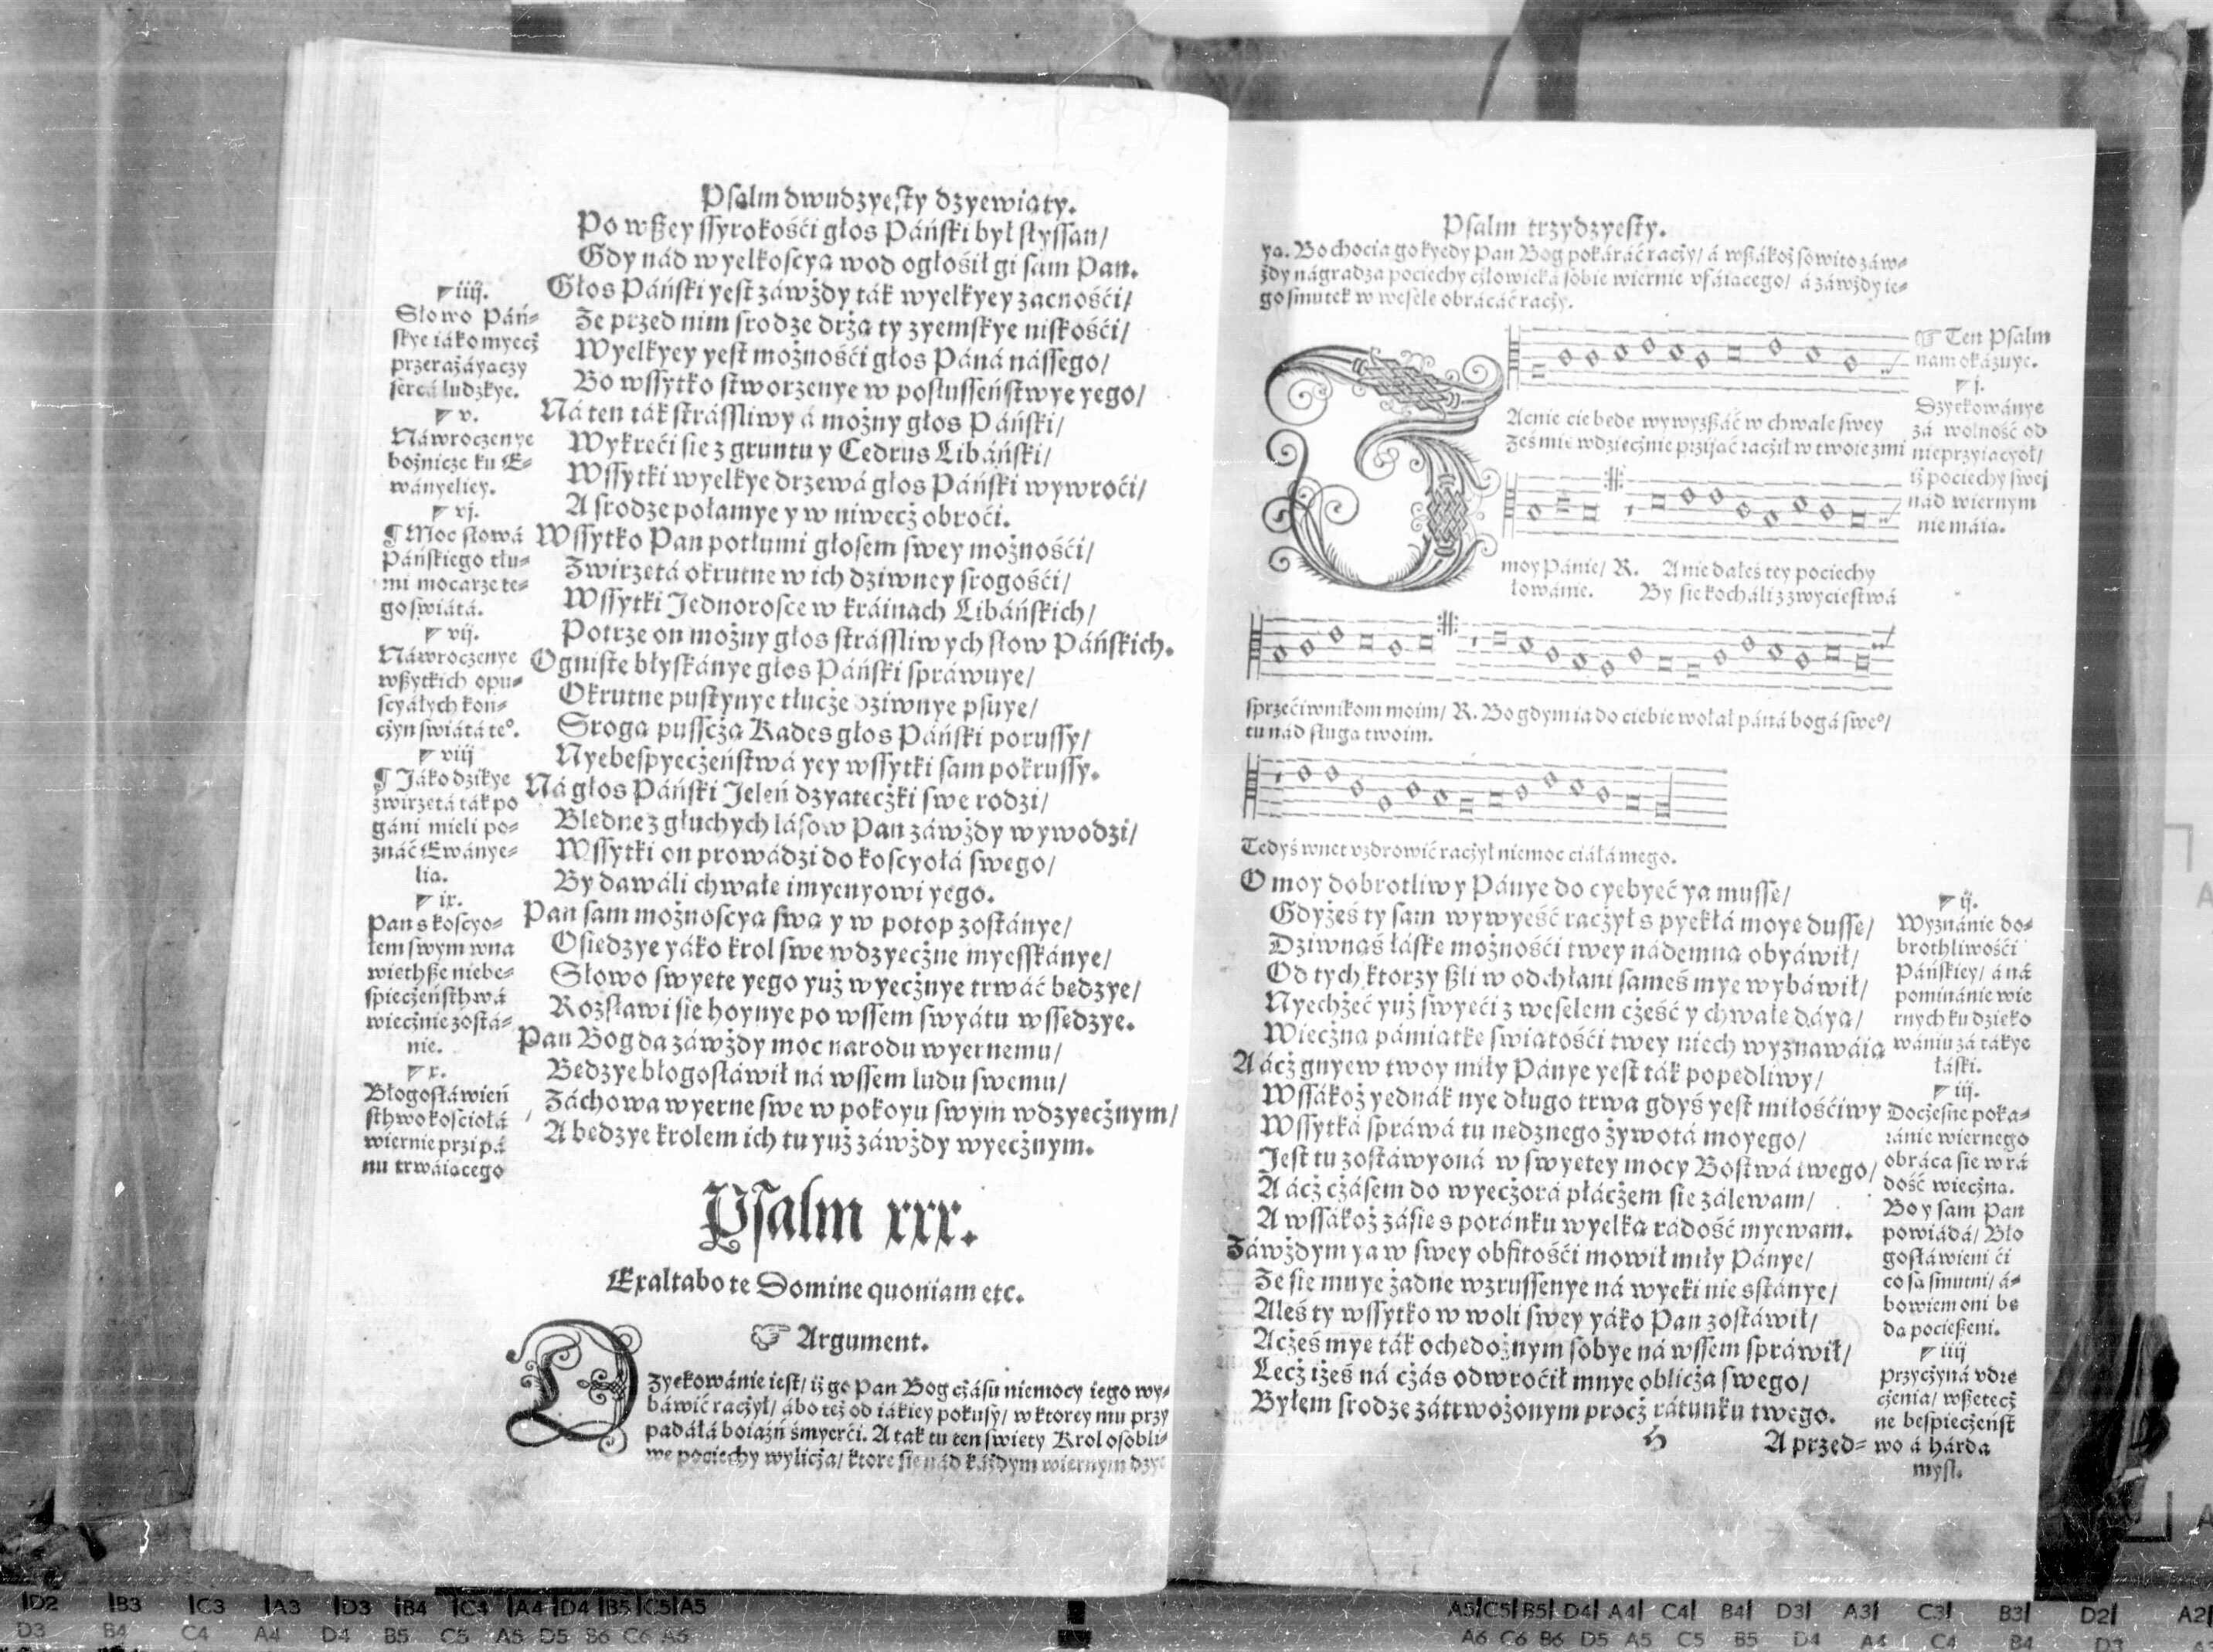 Psalm dwudzyesty dzyewiąty.
Po wßey ssyrokośći głos Páński był słyssan/
Gdy nád wyelkoscyą wod ogłosił gi sam Pan.
Głos Páński yest záwżdy ták wyelkyey zacnośći/
Że przed nim srodze drżą ty zyemskye niskośći/
Wyelkyey yest możnośći głos Páná nássego/
Bo wssytko stworzenye w posłusseństwye yego/
Ná ten ták strássliwy á możny głos Páński/
Wykręći się z gruntu y Cedrus Libáński/
Wssytki wyelkye drzewá głos Páński wywroći/
A srodze połamye y w niwecż obroći.
Wssytko Pan potłumi głosem swey możnośći/
Zwirzętá okrutne w ich dziwney srogośći/
Wssytki Jednorosce w kráinach Libáńskich/
Potrze on możny głos strássliwych słow Páńskich.
Ogniste błyskánye głos Páński spráwuye/
Okrutne pustynye tłucże dziwnye psuye/
Sroga pusscża Kades głos Páński porussy/
Nyebespyecżeństwá yey wssytki sam pokrussy.
Ná głos Páński Jeleń dzyatecżki swe rodzi/
Błędne z głuchych lásow Pan záwżdy wywodzi/
Wssytki on prowádzi do koscyołá swego/
By dawáli chwałę imyenyowi yego.
Pan sam możnoscyą swą y w potop zostánye/
Osiędzye yáko krol swe wdzyęcżne myesskánye/
Słowo swyęte yego yuż wyecżnye trwáć będzye/
Rozsławi się hoynye po wssem swyátu wssędzye.
Pan Bog da záwżdy moc narodu wyernemu/
Będzye błogosłáwił ná wssem ludu swemu/
Záchowa wyerne swe w pokoyu swym wdzyęcżnym/
A będzye krolem ich tu yuż záwżdy wyecżnym.
iiij.
Słowo Páń-
skye iáko myecż
przerażáyączy
sercá ludzkye.
v.
Náwroczenye
bożnicze ku E-
wányeliey.
vj.
¶ Moc słowá
Páńskiego tłu-
mi mocarze te-
go świátá.
vij.
Náwroczenye
wßytkich opu-
scyáłych koń-
cżyn swiátá te°.
viij
¶ Jáko dzikye
zwirzętá ták po
gáni mieli po-
znáć Ewánye-
lią.
ix.
Pan s koscyo-
łem swym w na
wiethße niebe-
spiecżeństhwá
wiecżnie zostá-
nie.
x.
Błogosłáwień
sthwo kościołá
wiernie przi pá
nu trwáiącego
Psalm xxx.
Exaltabo te Domine quoniam etc.
☞ Argument.
Dzyękowánie iest/ iż go Pan Bog cżásu niemocy iego wy-
báwić racżył/ ábo też od iákiey pokusy/ w ktorey mu przy
padáłá boiaźń śmyerći. A tak tu ten swięty Krol osobli-
we pociechy wylicża/ ktore się nád káżdym wiernym dzye
Psalm trzydzyesty.
ya. Bo chocia go kyedy Pan Bog pokáráć racży/ á wßákoż sowito záw-
żdy nágradza pociechy cżłowieká sobie wiernie vfáiącego/ á záwżdy ie-
go smutek w wesele obrácáć racży.
☞ Ten Psalm
nam okázuye.
j.
Dzyękowánye
zá wolność od
nieprzyiacyoł/
iż pociechy swej
nád wiernym
nie máią.
Zacnie cię będę wywyzßáć w chwale swey
Żeś mię wdzięcżnie przijąć racżił w twoie zmi
moy Pánie/ R. A nie dałeś tey pociechy
łowánie. By się kocháli z zwyciestwá
sprzećiwnikom moim/ R. Bo gdym ia do ciebie wołał páná bogá swe°/
tu nád sługą twoim.
Tedyś wnet vzdrowić racżył niemoc ciáłá mego.
O moy dobrotliwy Pánye do cyebyeć ya musse/
Gdyżeś ty sam wywyeść racżył s pyekłá moye dusse/
Dziwnąś łáskę możnośći twey nádemną obyáwił/
Od tych ktorzy ßli w odchłani sameś mye wybáwił/
Nyechżeć yuż swyęći z weselem cżeść y chwałę dáyą/
Wiecżną pámiątkę swiątośći twey niech wyznawáią
A ácż gnyew twoy miły Pánye yest ták popędliwy/
Wssákoż yednák nye długo trwa gdyś yest miłośćiwy
Wssytká spráwá tu nędznego żywotá moyego/
Jest tu zostáwyoná w swyętey mocy Bostwá twego/
A ácż cżásem do wyecżorá płácżem się zálewam/
A wssákoż zásię s poránku wyelką rádość myewam.
Záwżdym ya w swey obfitośći mowił miły Pánye/
Że się mnye żadne wzrussenye ná wyeki nie sstánye/
Aleś ty wssytko w woli swey yáko Pan zostáwił/
Acżeś mye ták ochędożnym sobye ná wssem spráwił/
Lecż iżeś ná cżás odwroćił mnye oblicża swego/
Byłem srodze zátrwożonym procż rátunku twego.
H
A przed-
ij.
Wyznánie do-
brothliwośći
Páńskiey/ á ná
pominánie wie
rnych ku dzięko
wániu zá tákye
łáski.
iij.
Docżesne poka-
ránie wiernego
obráca się w rá
dość wiecżną.
Bo y sam Pan
powiádá/ Bło
gosłáwieni ći
co są smutni/ á-
bowiem oni bę
dą pocießeni.
iiij
Przycżyná vdrę
cżenia/ wßetecż
ne bespiecżeńst
wo á hárda
mysl.